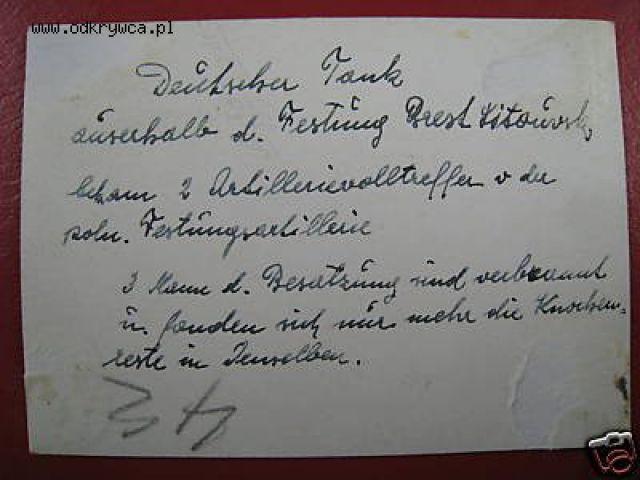 www.odkrywca.pl
Deutscher Tank
auserhalb d. Festung Brest Litauvsk,
bekam 2 Artillerievolltreffer v der
poln. Festungsartillerie
3 Mann d. Besatzung sind verbrannt
u. fanden sich nur mehr die Knochen-
reste in Denselben.